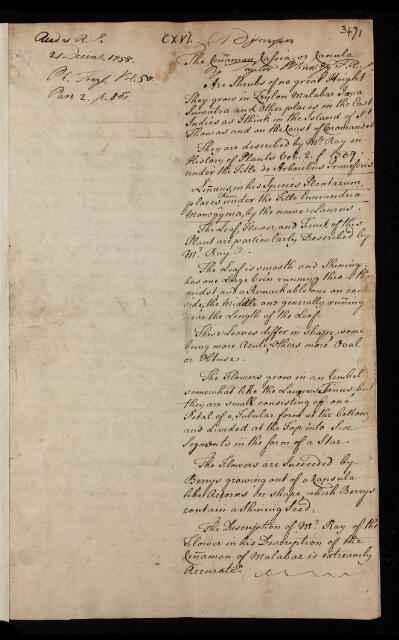 3471
Read R. S.
21 Decemr. 1758.
Ph. Trans. Vol. 50
Part 2. p. 860.
CXVI. A Discourse on
The Cinnamon, Cassia, or Canela
By Taylor White Esqr F.R.S.
Are Shrubs of no great Height
They grow in Ceylon Malabar Java
Sumatra and other places in the East
Indies as I think in the Island of St
Thomas and on the Coast of Cromandel
They are described by Mr. Ray in
History of Plants Vol. 2. f. 1569.
under the Title de Arboribus Pruniferis
Linæus, in his Species Plantarum
places them under the Title Enneandria
Monogynia, by the name Laurus.
The Leaf, Flower, and Fruit, of this
Plant are particularly Described by
Mr. Ray.
The Leaf is smooth and Shining
has one Large Vein running thro' the
midst, and a Remarkable one on each
side, the Middle one generally runing
near the Length of the Leaf.
These Leaves differ in Shape, some
being more Acute, others more Oval
or Obtuse.
The Flowers grow in an Umbel
somewhat like the Laurus Tinus, but
they are small consisting of one
Petal of a Tubular form at the bottom,
and divided at the Top into Six
Segments in the form of a Star.
The Flowers are Succeeded by
Berrys growing out of a Capsula
like Acorns in shape, which Berrys
contain a Shining Seed.
The Description of Mr. Ray of the
Flower in his Description of the
Ciñamon of Malabar is extreamly
Accurate.